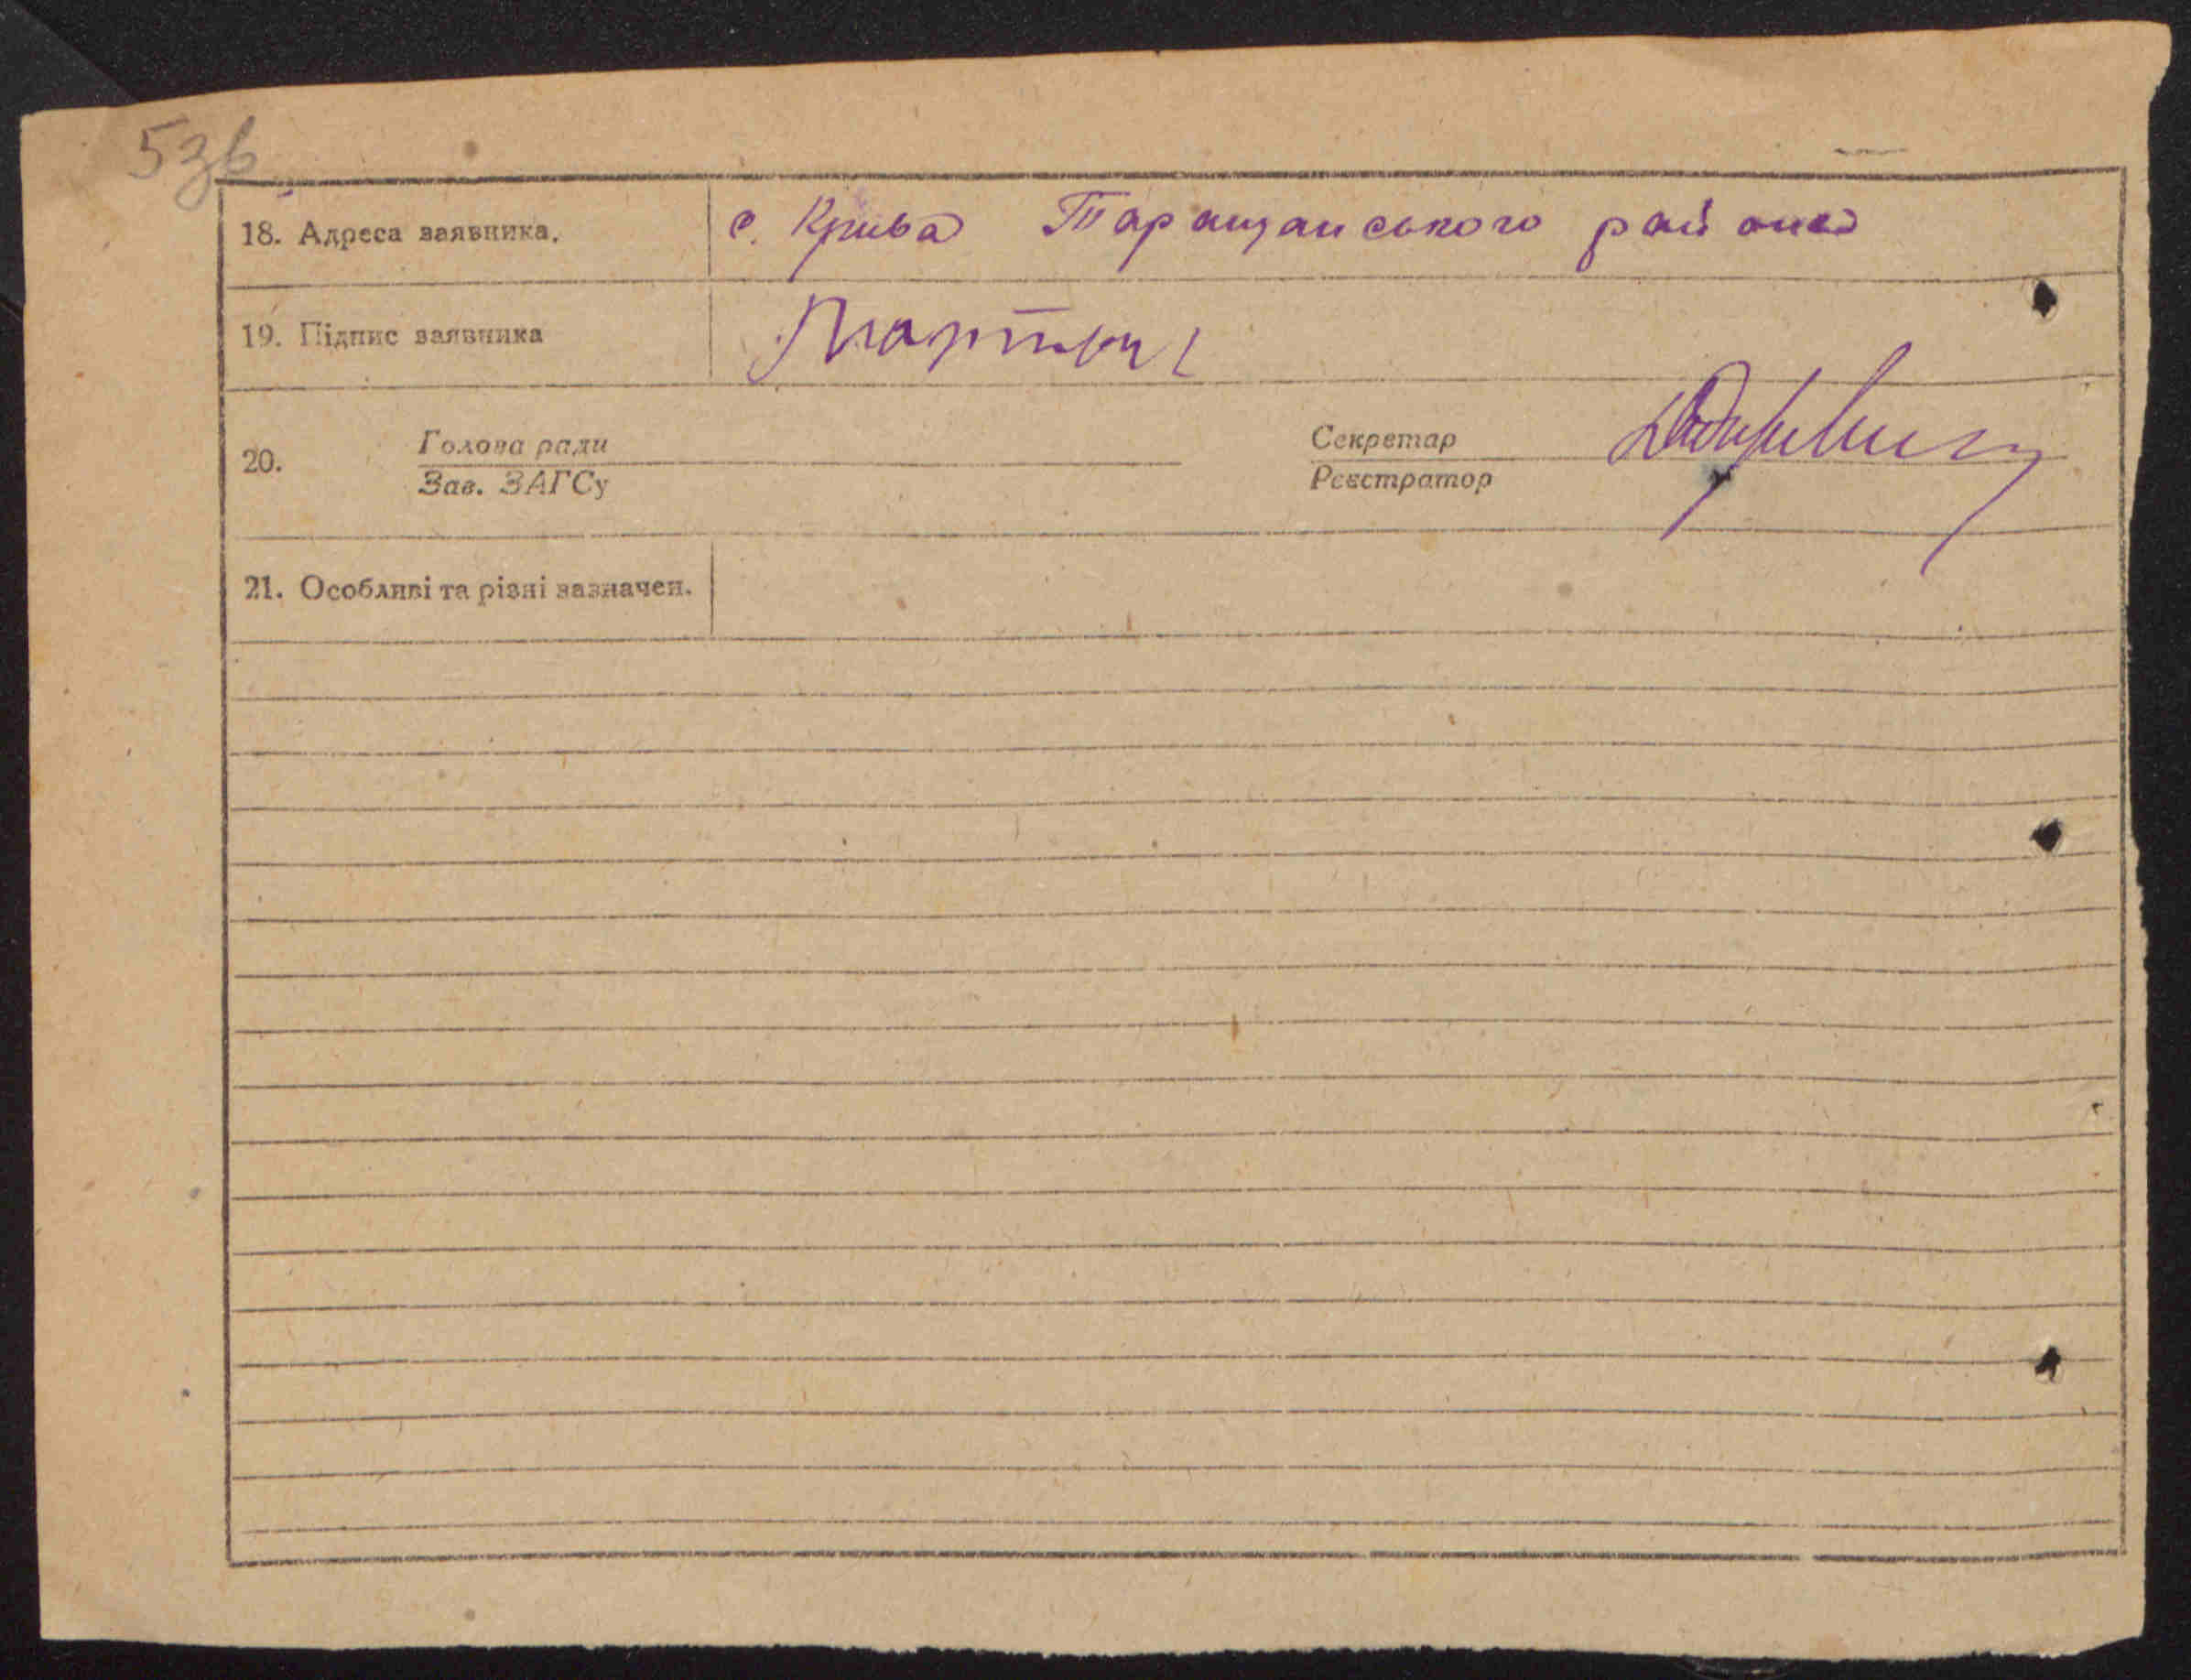 53в
18. Адреса заявника. с. Крива Таращанського района
19. Підпис заявника
20. Голова ради Секретар
Зав. ЗАГСу Реєстратор
21. Особливі та різні зазначен.